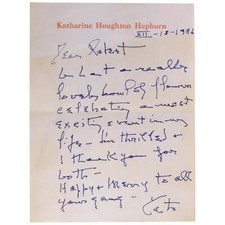 Katharine Houghton Hepburn
XII - 18 - 1992
Dear Robert
what a really
lovely bowl of flowers
celebrating a most
exciting event in my
life - I'm thrilled &
I thank you for
both -
Happy & Merry to all
your gang - Kate